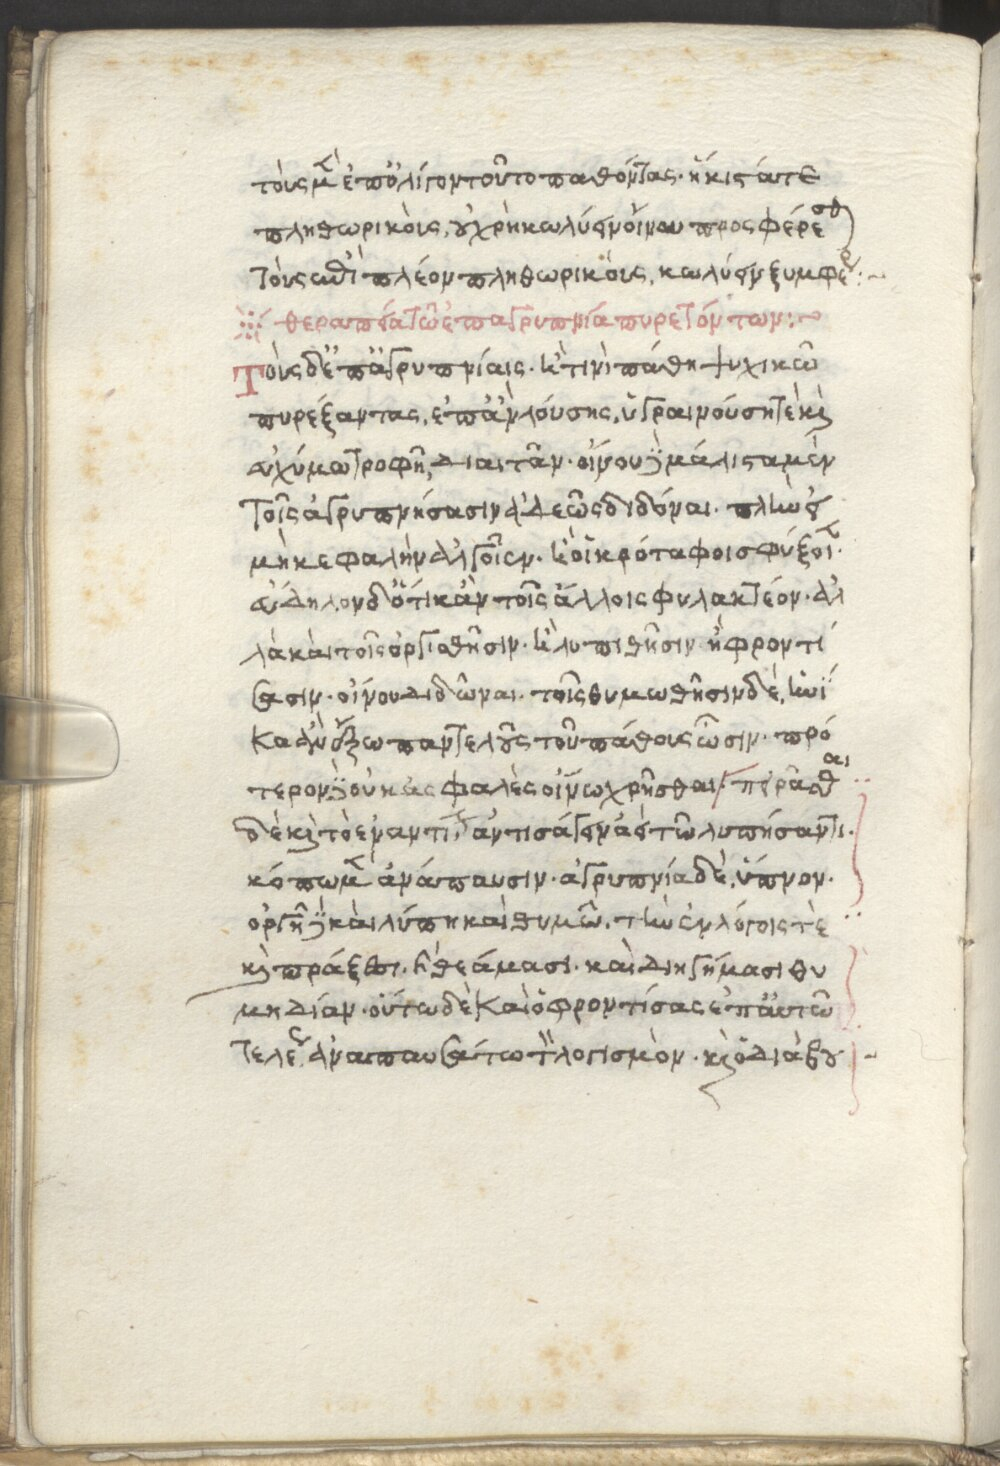 τοὺς μὲν ἐπ ὀλίγον τοῦτο παθόντας. ἥκιστά τε
πληθωρικοῖς, οὐ χρὴ κωλύειν οἴνου προσφέρεσθ
τοὺς δ ἐπὶ πλέον πληθωρικοὺς, κωλύειν ξυμφέρ:~
θεραπεία τῶν ἐπ ἀγρυπνία πυρετόντων:~
Τοὺς δ ἐπ ἀγρυπνίαις. καὶ τισὶ πάθη ψυχικῶν
πυρέξαντας, ἐπανλούσης, ὑγραινούσῃ τε καὶ
εὐχύμω τροφῆ, διαιτᾶν. οἴνου δὲ μάλιστα μὲν
τοῖς ἀγρυπνήσασιν ἀδεῶς διδόναι. πλὴν εἰ
μὴ κεφαλὴν ἀλγοῖεν. καὶ οἱ κρόταφοι σφύζοιεν.
εὔδηλον δ ὅτι κἀν τοῖς ἄλλοις φυλακτέον. ἀλ
λὰ καὶ τοῖς ὀργισθῆσιν. καὶ λυπηθῆσιν ἢ φροντί
σασιν. οἴνου διδῶναι. τοῖς θυμωθῆσιν δὲ, ἡνί
κα ἂν ἔξω παντελῶς τοῦ πάθους ὦσιν. πρό
τερον δὲ οὐκ ἀσφαλὲς οἴνω χρῆσθαι. πειρᾶσθαι
δὲ καὶ τὸ ἐναντίον ἀντισάγειν ἀεὶ τῶ λυπήσαντι.
κόπω μὲν ἀνάπαυσιν. ἀγρυπνία δὲ, ὕπνον.
ὀργῆ δὲ καὶ λύπη καὶ θυμῶ. τὴν ἐν λόγοις τὲ
καὶ πράξεσι. καὶ θεάμασι. καὶ διηγήμασι θυ
μηδίαν. οὕτω δὲ καὶ ὁ φροντίσας ἐπ αὐτῶ
τελεῖν ἀναπαυσάτω τὸν λογισμὸν. καὶ ὁ διὰ βου